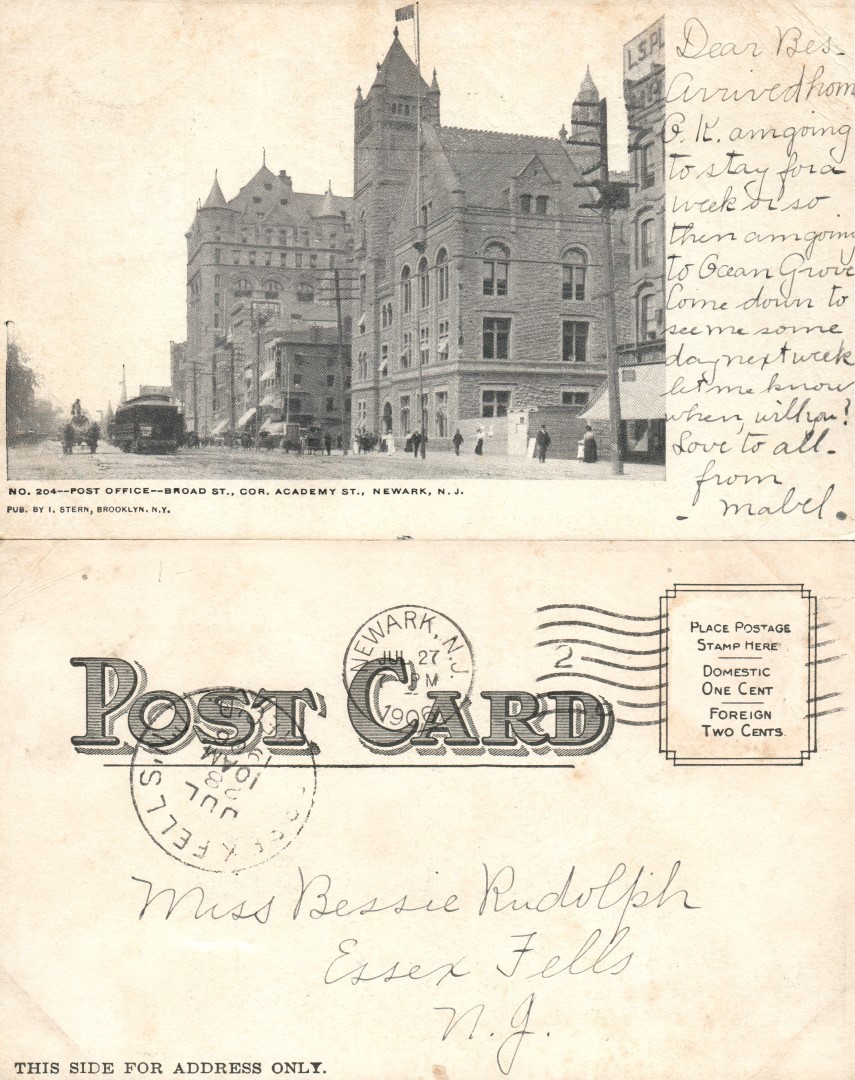 L.S.PL
Dear Bes-
Arrived hom
O.K. am going
to stay for a
week or so
then am going
to Ocean Grove
Come down to
see me some
day next week
let me know
when, will you?
Love to all-
from
- Mabel.
NO. 204--POST OFFICE--BROAD ST., COR. ACADEMY ST., NEWARK, N. J.
PUB. BY I. STERN, BROOKLYN, N.Y.
NEWARK, N.J.
JUL 27
PM
1906
2
PLACE POSTAGE
STAMP HERE
DOMESTIC
ONE CENT
FOREIGN
TWO CENTS.
POST CARD
FELLS
JUL
28
10AM
Miss Bessie Rudolph
Essex Fells
N. J.
THIS SIDE FOR ADDRESS ONLY.